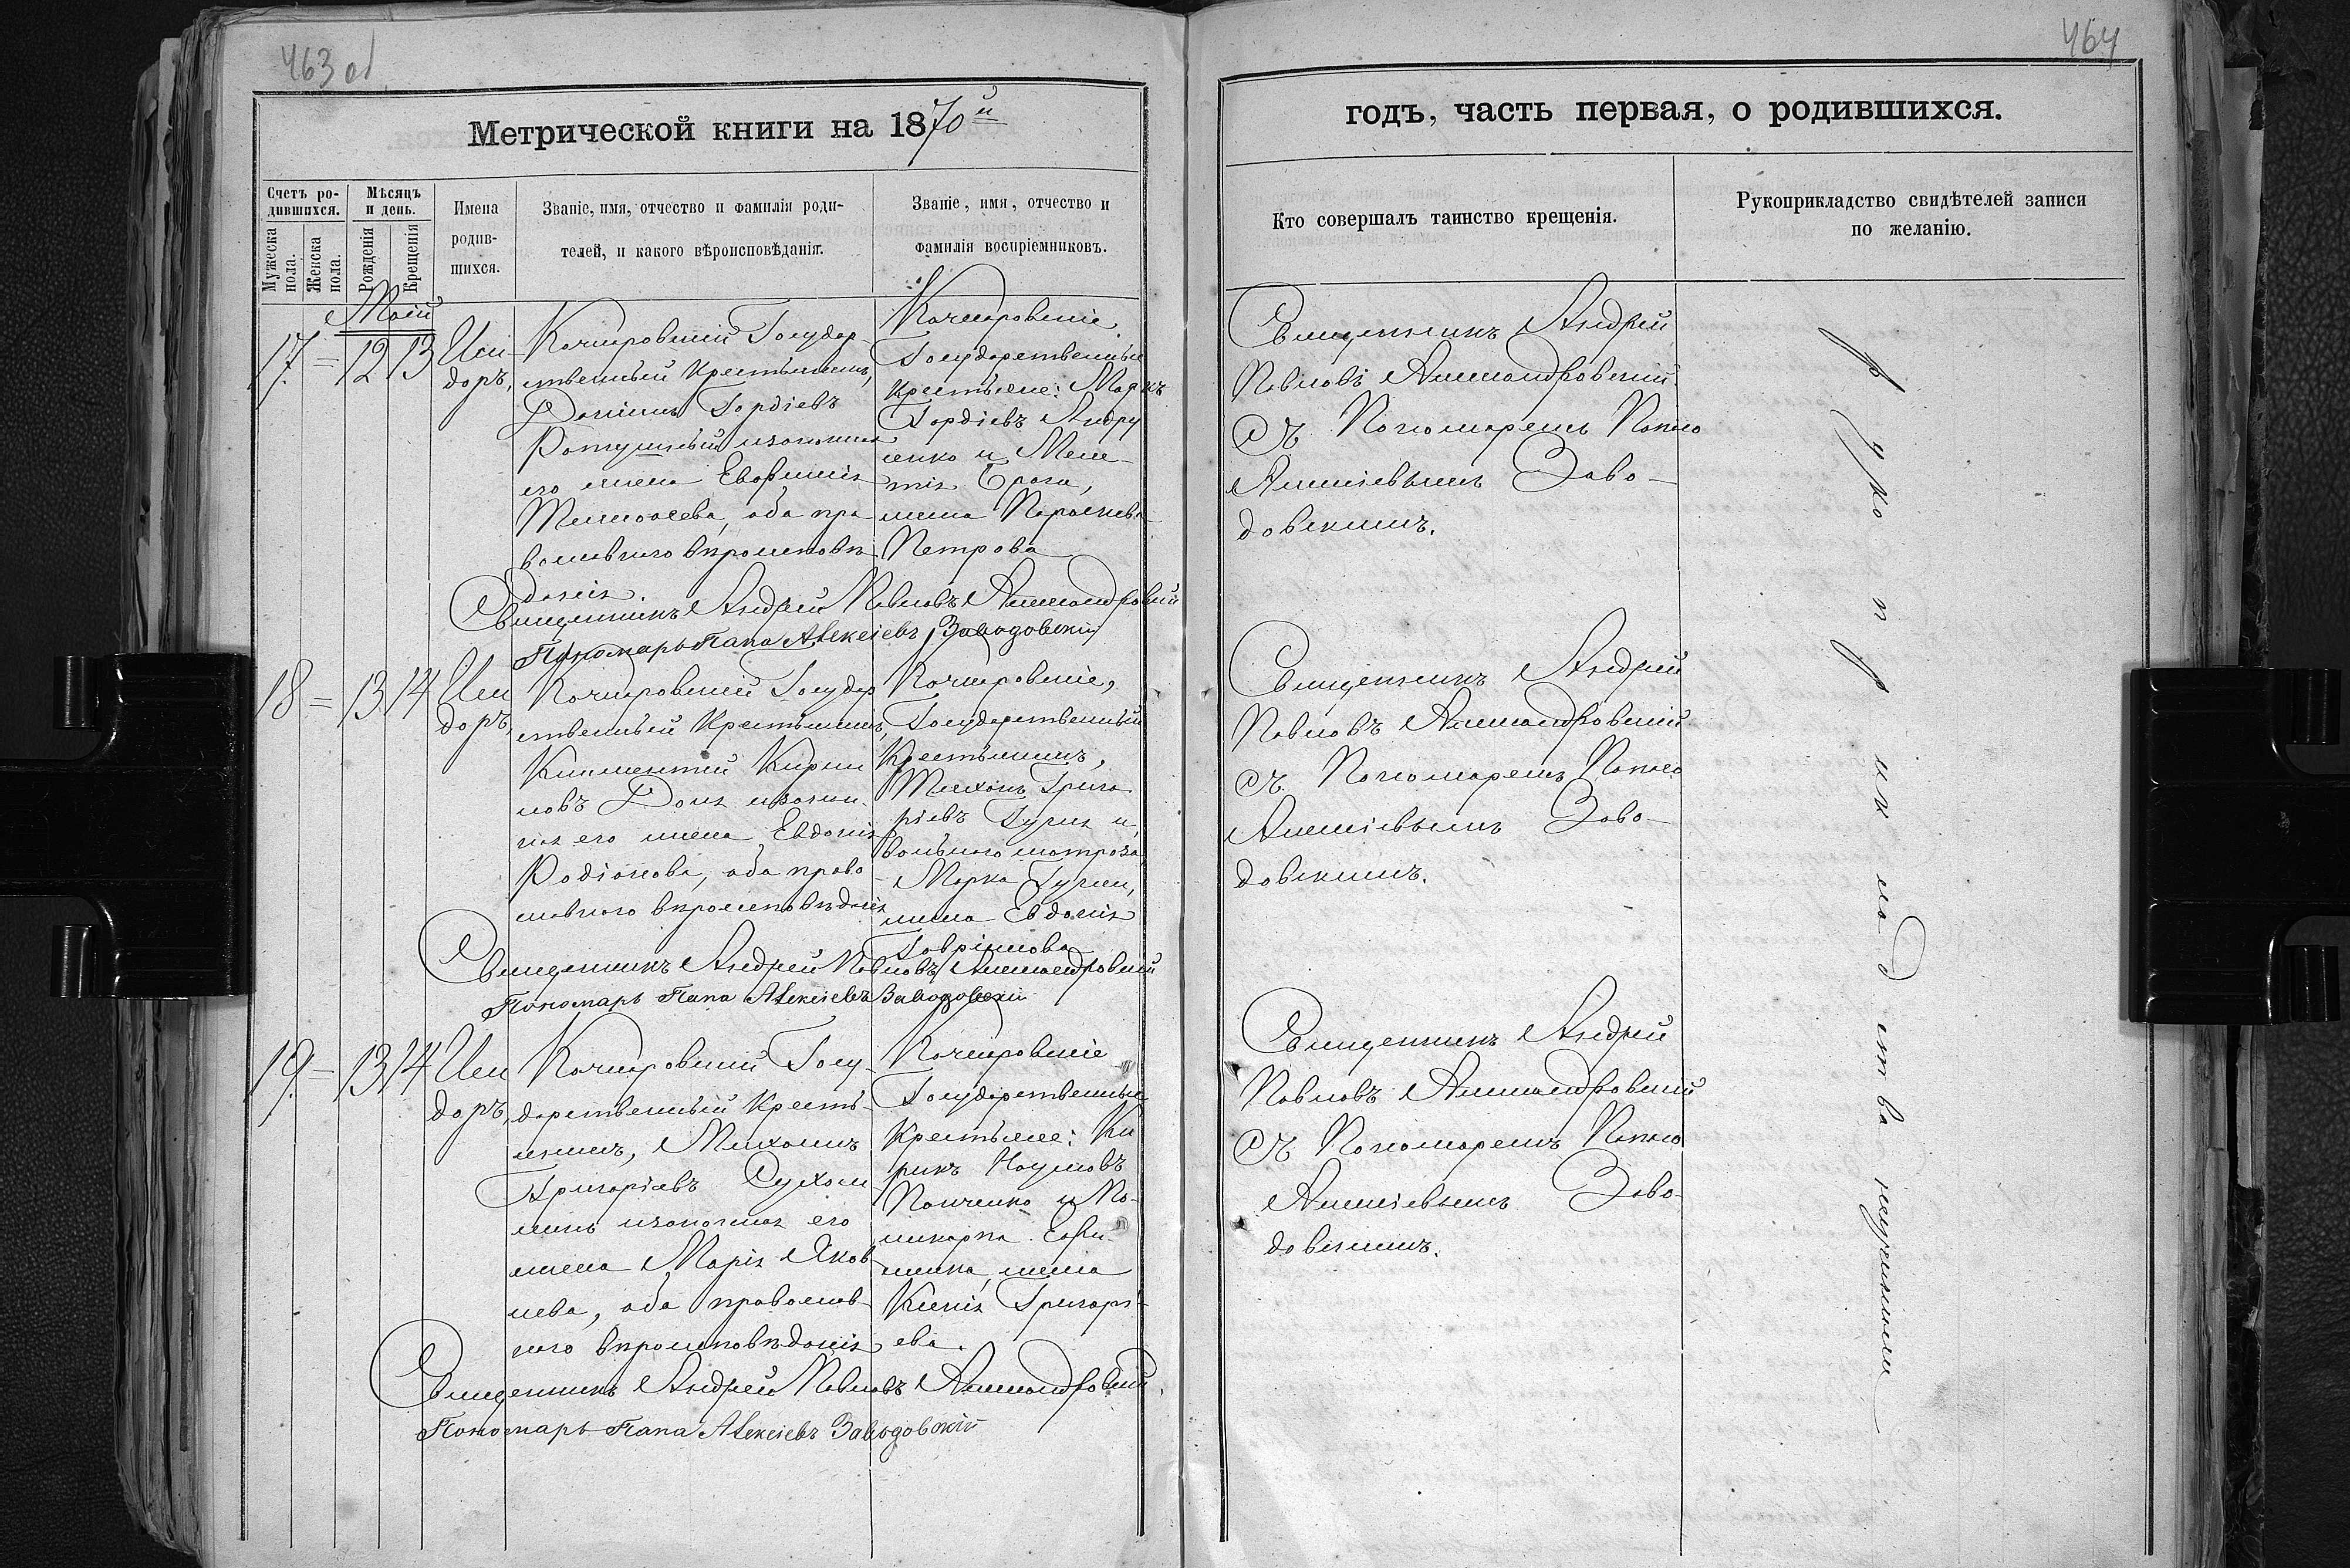 463 об
Метрической книги на 1870й
Счетъ ро-
дившихся.
Мужеска
пола.
Женска
пола.
Мѣсяцъ
и день.
Рожденія
Крещенія
Имена
родив-
шихся.
Званіе, имя, отчество и фамилія роди-
телей, и какого вѣроисповѣданія.
Званіе, имя, отчество и
фамилія воспріемниковъ.
Май
17. = 12 13
Иси-
доръ,
Качкаровскій Государ-
ственный Крестьянинъ,
Даніилъ Гордіевъ
законная
его жена Евфимія
Тимофеева, оба пра
вославнаго вѣроисповѣ
данія.
Качкаровскіе
Государственные
Крестьяне: Маркъ
Гордіевъ Андру
сенко и Меле-
тія
жена Параскева
Петрова
Священникъ Андрей Павловъ Александровскій
Пономарь Папа Алексіевъ Заводовскій
18 = 13 14
Иси
доръ,
Качкаровскій Государ
ственный Крестьянинъ,
Климентій Кирил
ловъ закон-
ная его жена Евдокія
Родіонова, оба право
славнаго вѣроисповѣданія
Качкаровскіе,
Государственный
Крестьянинъ,
Тихонъ Григо
ріевъ и
вольнаго матроза
Марка
жена Евдокія
Гавріилова
Священникъ Андрей Павловъ Александровскій
Пономарь Папа Алексіевъ Заводовскій
19. = 13 14
Иси
доръ,
Качкаровскій Госу-
дарственный Кресть-
янинъ, Михаилъ
Григоріевъ Сухом
линъ и законная его
жена Марія Яков
лева, оба православ-
наго вѣроисповѣданія
Качкаровскіе
Государственные
Крестьяне: Ки
рикъ Наумовъ
Панченко и По-
ликарпа
жена
Ксенія Григорі-
ева.
Священникъ Андрей Павловъ Александровскій
Пономарь Папа Алексіевъ Заводовскій
464
годъ, часть первая, о родившихся.
Кто совершалъ таинство крещенія.
Рукоприкладство свидѣтелей записи
по желанію.
Священникъ Андрей
Павловъ Александровскій
съ Пономаремъ Папою
Алексіевымъ Заво-
довскимъ.
Священникъ Андрей
Павловъ Александровскій
съ Пономаремъ Папою
Алексіевымъ Заво-
довскимъ.
Священникъ Андрей
Павловъ Александровскій
съ Пономаремъ Папою
Алексіевымъ Заво-
довскимъ.
рукоприкладства неучинили